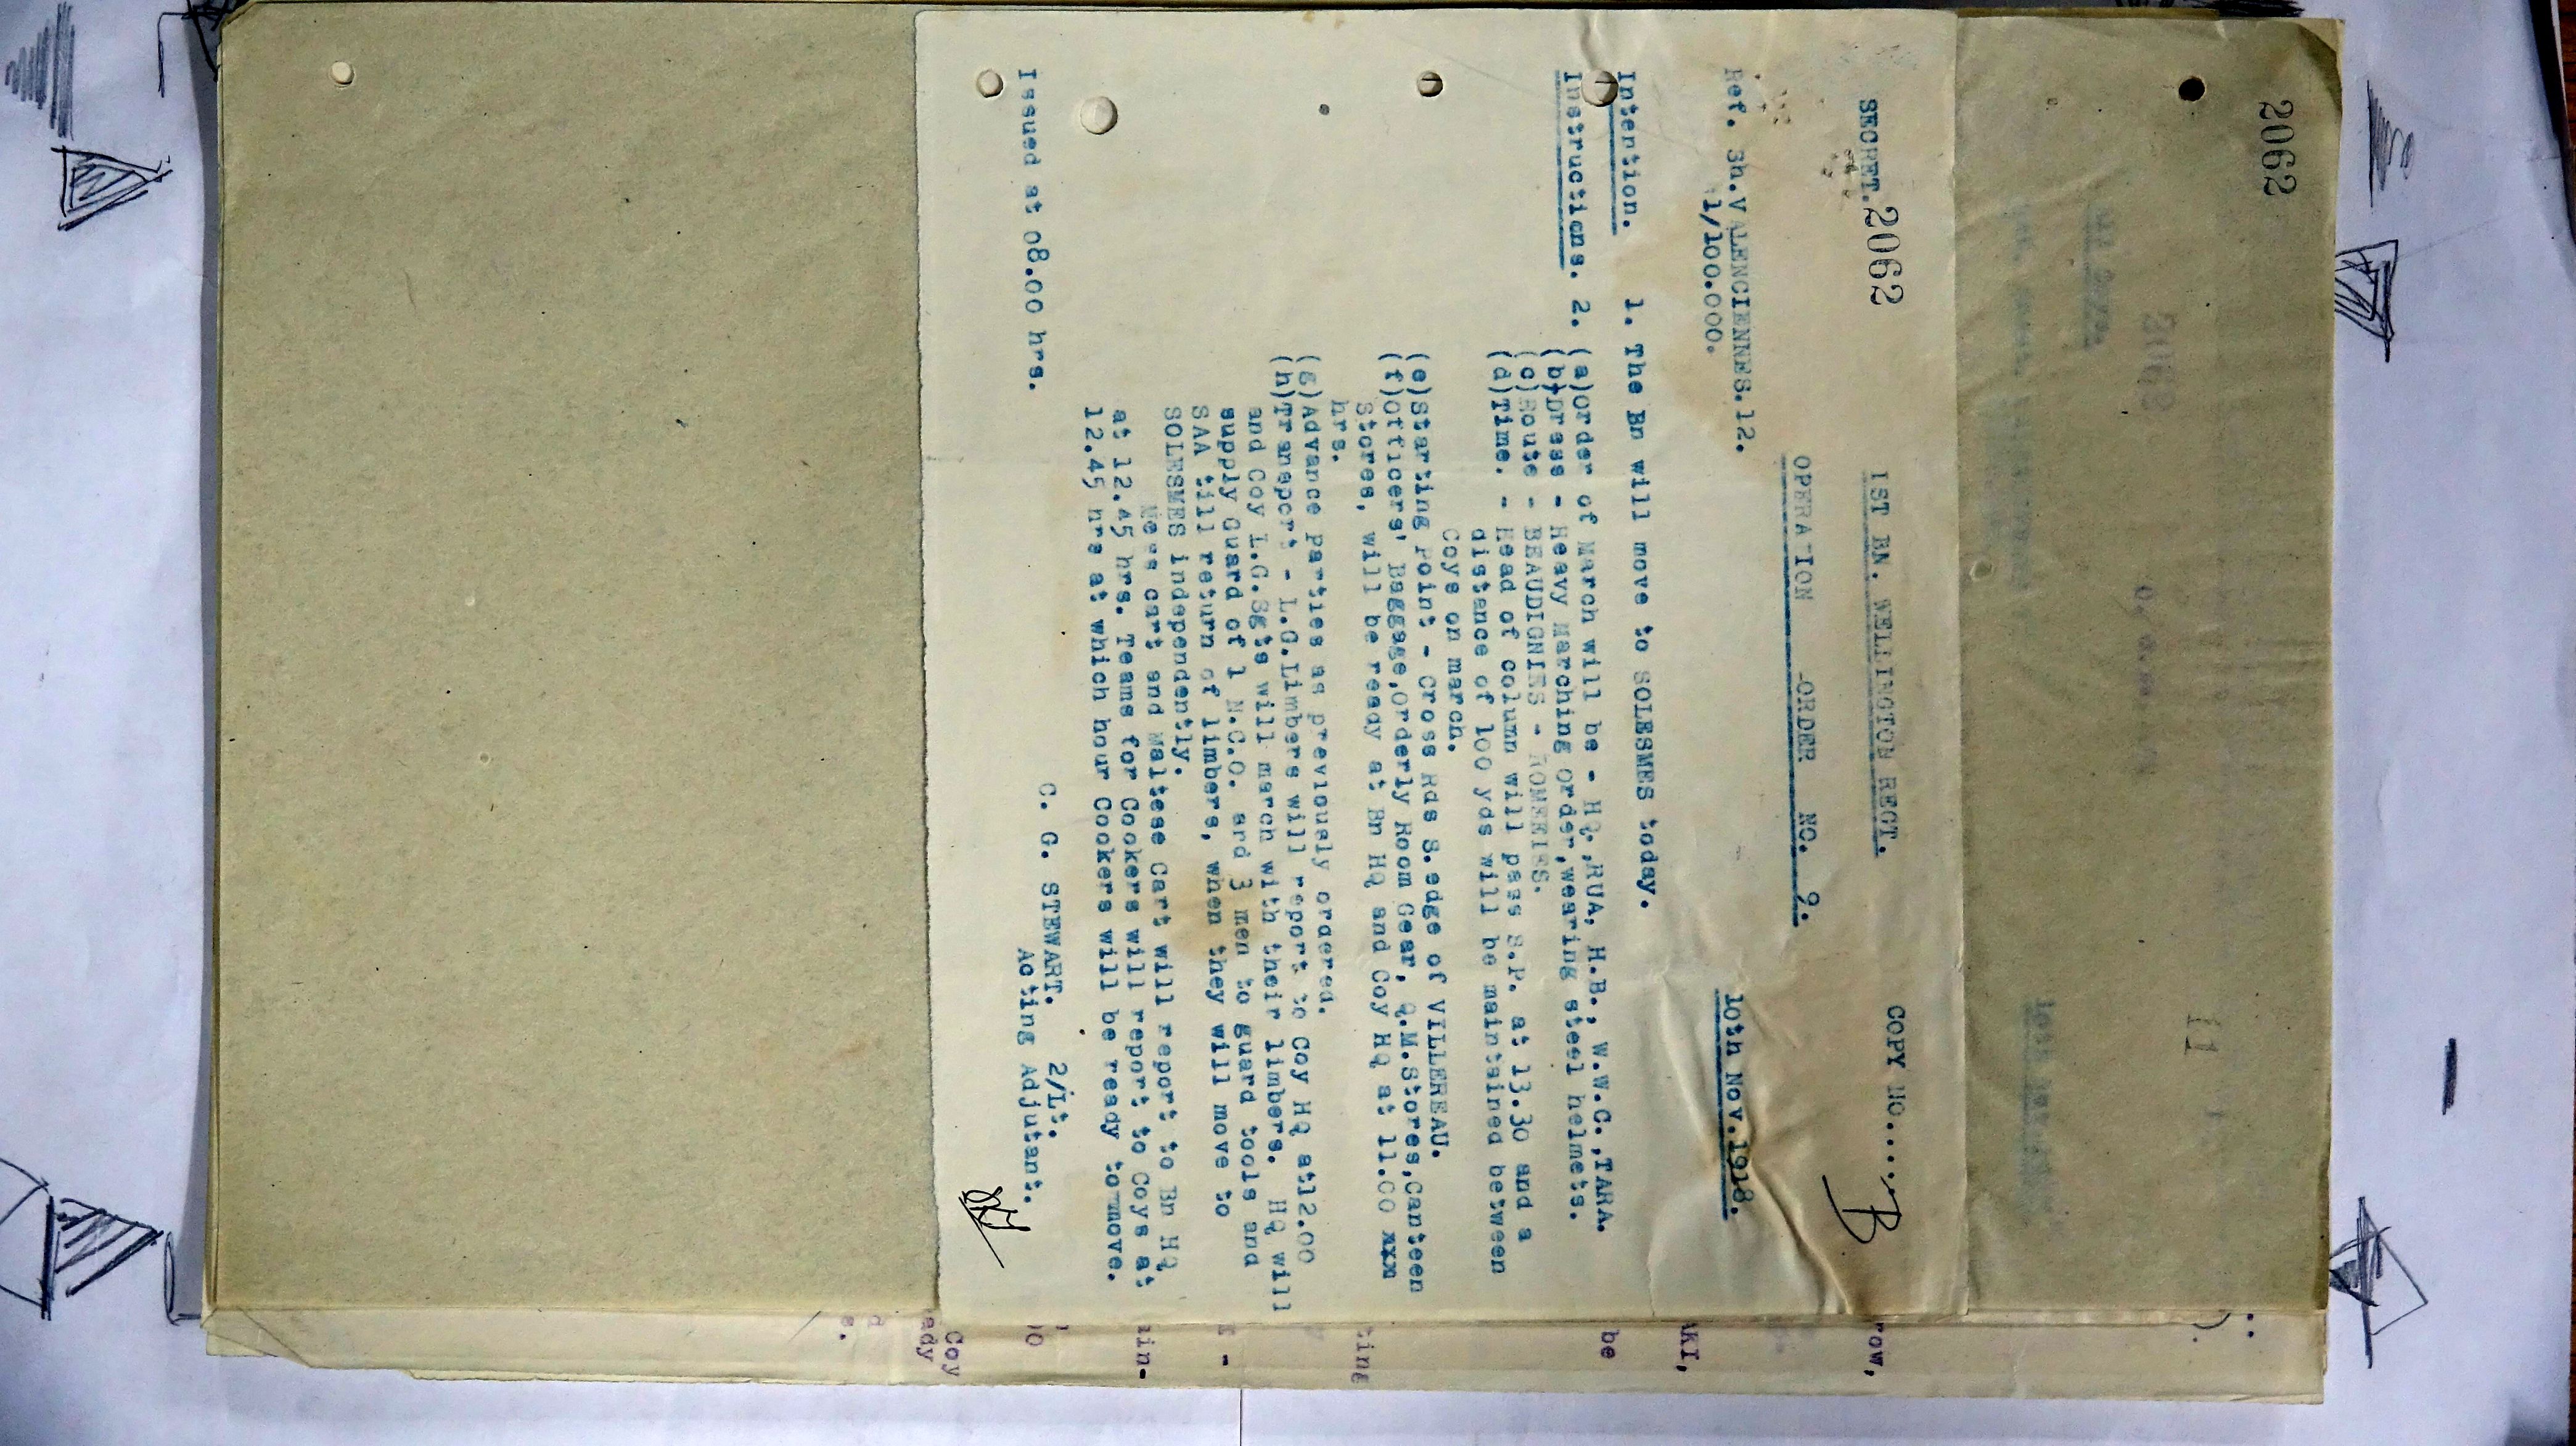 2062
SECRET. 2062
1ST BN. WELLINGTON REGT.
COPY NO.....
OPERATION ORDER NO. 9.
Ref. Sh. VALENCIENNES.12.
1/100.000.
10th Nov.1918.
Intention. 1. The Bn will move to SOLESMES today.
Instructions. 2. (a)Order of March will be - HQ.,RUA, H.B., W.W.C.,TARA.
(b)Dress - Heavy Marching Order,wearing steel helmets.
(c)Route - BEAUDIGNIES - ROMERIES.
(d)Time. - Head of column will pass S.P. at 13.30 and a
distance of 100 yds will be maintained between
Coys on march.
(e)Starting Point - Cross Rds S.edge of VILLEREAU.
(f)Officers' Baggage,Orderly Room Gear, Q.M.Stores,Canteen
Stores, will be ready at Bn HQ and Coy HQ at 11.00 xxx
hrs.
(g)Advance Parties as previously ordered.
(h)Transport - L.G.Limbers will report to Coy HQ at12.00
and Coy L.G.Sgts will march with their limbers. HQ will
supply Guard of 1 N.C.O. and 3 men to guard tools and
SAA till return of limbers, when they will move to
SOLESMES independently.
Mess cart and Maltese Cart will report to Bn HQ
at 12.45 hrs. Teams for Cookers will report to Coys at
12.45 hrs at which hour Cookers will be ready to move.
C. G. STEWART. 2/Lt.
Acting Adjutant.
Issued at 08.00 hrs.
row,
AKI,
be
ting
I -
ain-
00
Coy
eady
d
s.